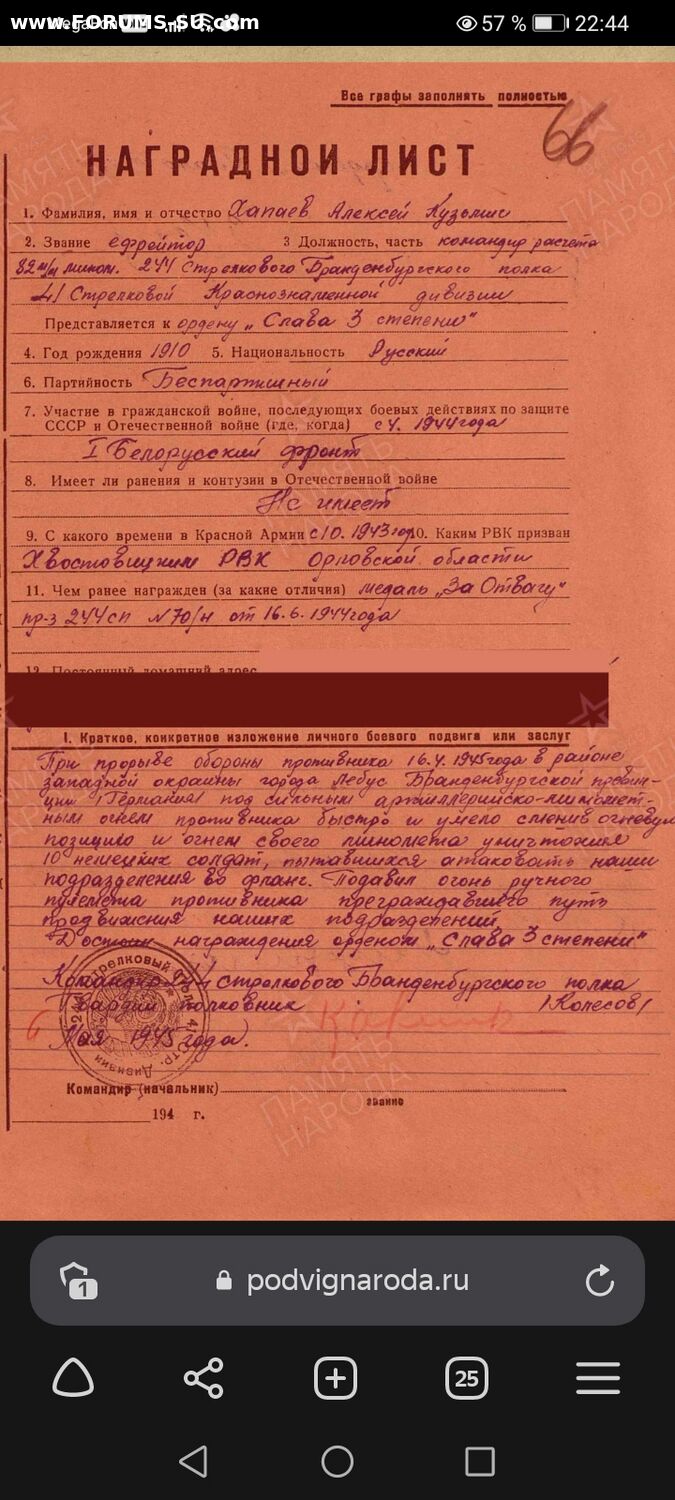 www.FORUMS-SU.com
57 % 22:44
Все графы заполнять полностью
66
НАГРАДНОЙ ЛИСТ
1. Фамилия, имя и отчество Хапаев Алексей Кузьмич
2. Звание ефрейтор 3 Должность, часть командир расчета
82 м/м мином. 244 Стрелкового Бранденбургского полка
41 Стрелковой Краснознаменной дивизии
Представляется к ордену „Слава 3 степени"
4. Год рождения 1910 5. Национальность Русский
6. Партийность Беспартийный
7. Участие в гражданской войне, последующих боевых действиях по защите
СССР и Отечественной войне (где, когда) с 4. 1944 года
I Белорусский фронт
8. Имеет ли ранения и контузии в Отечественной войне
Не имеет
9. С какого времени в Красной Армии с 10. 1943 год 10. Каким РВК призван
Хвостовицким РВК Орловской области
11. Чем ранее награжден (за какие отличия) медаль „За Отвагу"
пр-з 244 сп N 70/н от 16.6.1944 года
12. Постоянный домашний адрес
I. Краткое, конкретное изложение личного боевого подвига или заслуг
При прорыве обороны противника 16.4.1945 года в районе
западной окраины города Лебус Бранденбургской провин-
ции /Германия/ под сильным артиллерийско-миномет-
ным огнем противника быстро и умело сменив огневую
позицию и огнем своего миномета уничтожил
10 немецких солдат, пытавшихся атаковать наши
подразделения во фланг. Подавил огонь ручного
пулемета противника преграждавшего путь
продвижения наших подразделений.
Достоин награждения орденом „Слава 3 степени"
Командир 244 стрелкового Бранденбургского полка
Гвардии полковник /Колесов/
6 Мая 1945 года.
Командир (начальник)
звание
194 г.
ПАМЯТЬ НАРОДА
podvignaroda.ru
1
25